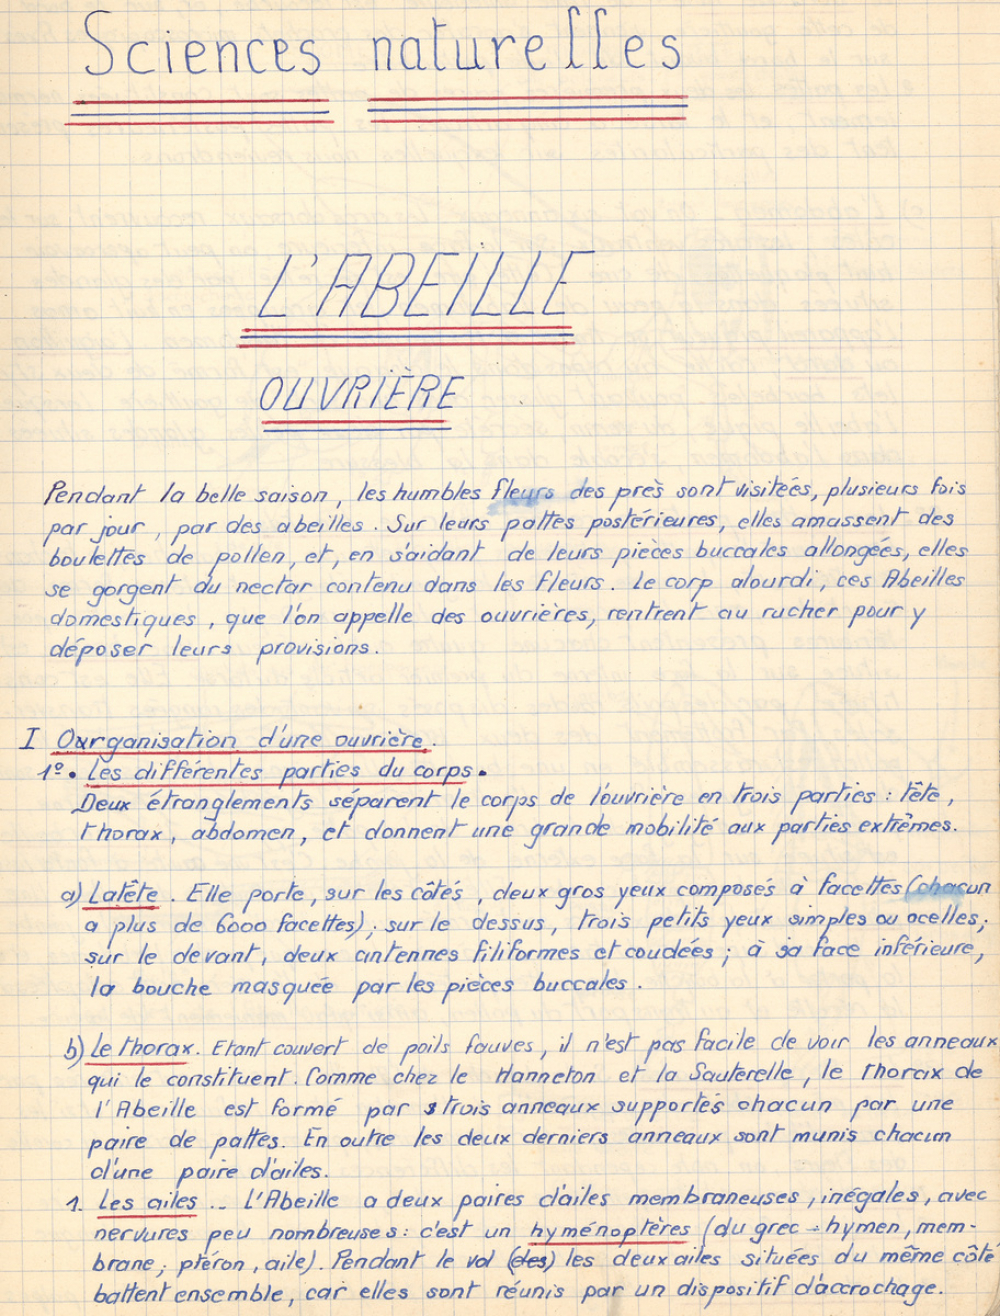 Sciences naturelles
L'ABEILLE
OUVRIÈRE
Pendant la belle saison, les humbles fleurs des près sont visiteés, plusieurs fois
par jour, par des abeilles. Sur leurs pattes postérieures, elles amassent des
boulettes de pollen, et, en s'aidant de leurs pièces buccales allongées, elles
se gorgent du nectar contenu dans les fleurs. Le corp alourdi, ces Abeilles
domestiques, que l'on appelle des ouvrières, rentrent au rucher pour y
déposer leurs provisions.
I Ourganisation d'une ouvrière.
1º. Les différentes parties du corps.
Deux étranglements séparent le corps de l'ouvrière en trois parties : tête,
thorax, abdomen, et donnent une grande mobilité aux parties extrêmes.
a) La tête. Elle porte, sur les côtés, deux gros yeux composés à facettes (chacun
a plus de 6000 facettes); sur le dessus, trois petits yeux simples ou ocelles;
sur le devant, deux antennes filiformes et coudées; à sa face inférieure,
la bouche masquée par les pièces buccales.
b) Le thorax. Etant couvert de poils fauves, il n'est pas facile de voir les anneaux
qui le constituent. Comme chez le Hanneton et la Sauterelle, le thorax de
l'Abeille est formé par trois anneaux supportés chacun par une
paire de pattes. En outre les deux derniers anneaux sont munis chacun
d'une paire d'ailes.
1. Les ailes .. L'Abeille a deux paires d'ailes membraneuses, inégales, avec
nervures peu nombreuses: c'est un hyménoptères (du grec : hymen, mem-
brane; ptéron, aile). Pendant le vol (des) les deux ailes situées du même côté
battent ensemble, car elles sont réunis par un dispositif d'accrochage.